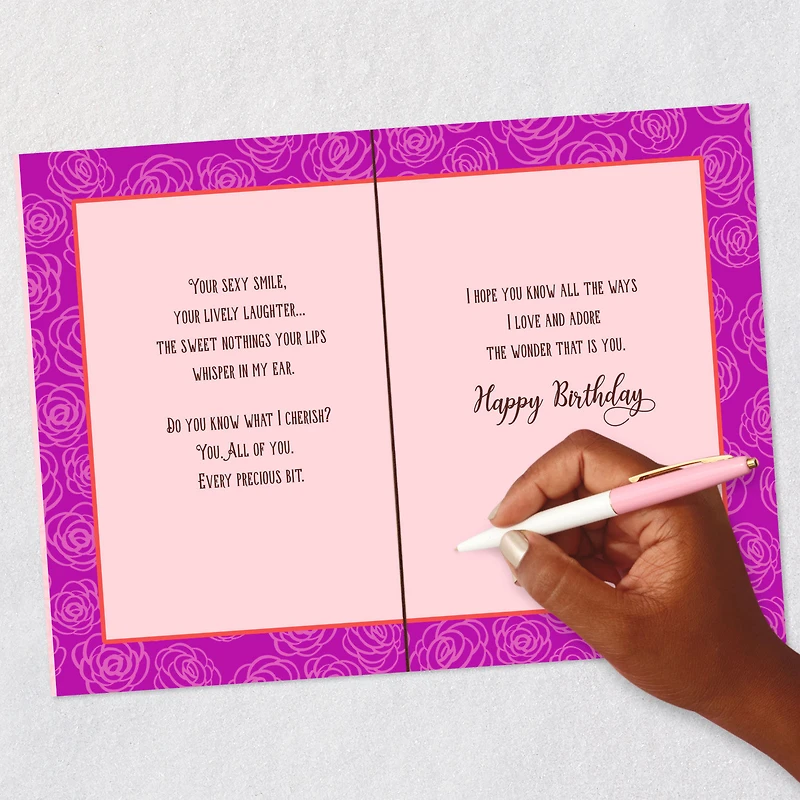 Your sexy smile,
your lively laughter...
the sweet nothings your lips
whisper in my ear.
Do you know what I cherish?
You. All of you.
Every precious bit.
I hope you know all the ways
I love and adore
the wonder that is you.
Happy Birthday